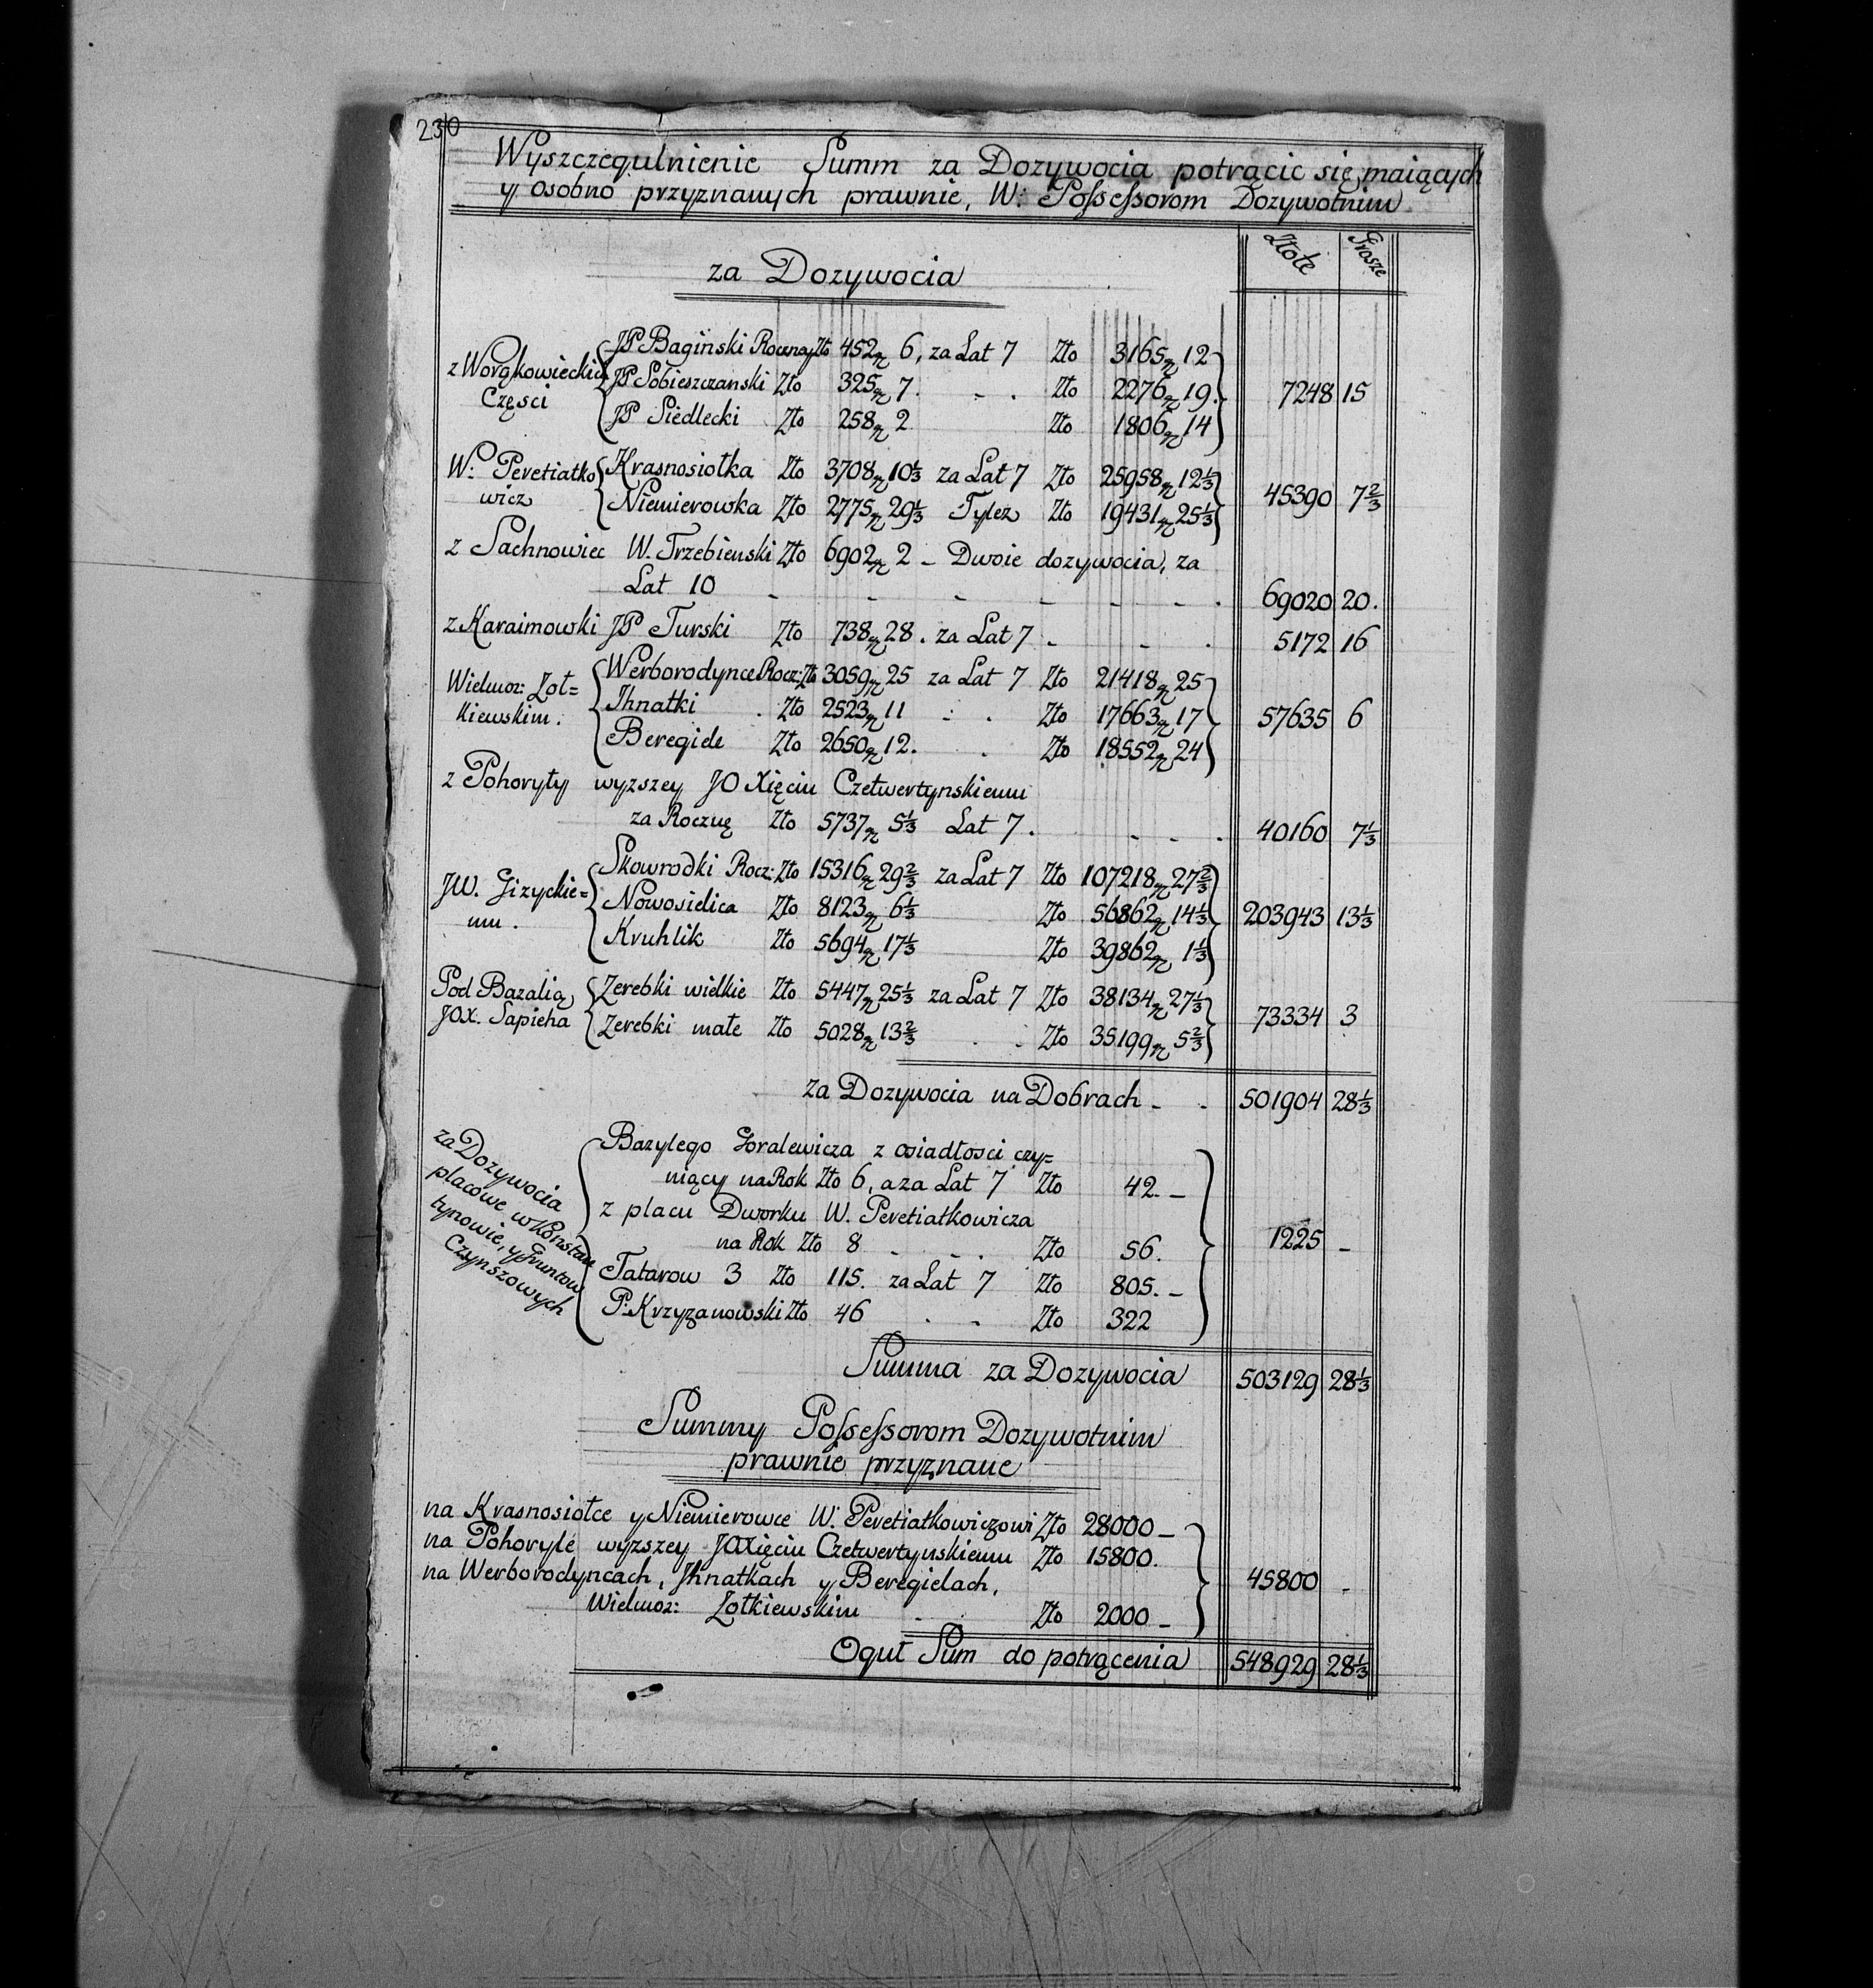 230
Wyszczegulnienie Summ za Dozywocia potrącic się maiących
y osobno przyznanych prawnie, W: Possessorom Dozywotnim
Złote Grosze
za Dozywocia
JP Baginski Roczney Zło 452 g 6, za Lat 7 Zło 3165 g 12
z Worąkowieckich JP Sobieszczanski Zło 325 g 7. - . Zło 2276 g 19. 7248 15
Częsci JP Siedlecki Zło 258 g 2 Zło 1806 g 14
W: Peretiatko Krasnosiołka Zło 3708 g 10⅓ za Lat 7 Zło 25958 g 12⅓
wicz Niemierowska Zło 2775 g 29⅓ Tylez Zło 19431 g 25⅓ 45390 7⅔
z Sachnowiec W. Trzebienski Zło 6902 g 2 - Dwoie dozywocia, za
Lat 10 - - - - - - . 69020 20.
z Karaimowski JP Turski Zło 738 g 28. za Lat 7 - - . 5172 16
Werborodynce Rocz: Zło 3059 g 25 za Lat 7 Zło 21418 g 25
Wielmoz: Zoł= Ihnatki . Zło 2523 g 11 - . Zło 17663 g 17 57635 6
kiewskim. Beregide Zło 2650 g 12. . Zło 18552 g 24
z Pohoryły wyzszey JO Xięciu Czetwertynskiemu
za Roczną Zło 5737 g 5⅓ Lat 7. - - . 40160 7⅓
Skowrodki Rocz: Zło 15316 g 29⅔ za Lat 7 Zło 107218 g 27⅔
JW. Gizyckie= Nowosielica Zło 8123 g 6⅓ Zło 56862 g 14⅓ 203943 13⅓
mu. Kruhlik Zło 5694 g 17⅓ Zło 39862 g 1⅓
Pod Bazalią Zerebki wielkie Zło 5447 g 25⅓ za Lat 7 Zło 38134 g 27⅓
JOX. Sapieha Zerebki małe Zło 5028 g 13⅔ . . Zło 35199 g 5⅔ 73334 3
za Dozywocia na Dobrach - . 501904 28⅓
za Dozywocia
placowe w Konstan
tynowie, y Gruntow
Czynszowych
Bazylego Goralewicza z osiadłosci czy=
niący na Rok Zło 6, a za Lat 7 Zło 42. -
z placu Dworku W. Peretiatkowicza
na Rok Zło 8 - - . Zło 56. 1225 -
Tatarow 3 Zło 115. za Lat 7 Zło 805. -
P. Krzyzanowski Zło 46 . - Zło 322
Summa za Dozywocia 503129 28⅓
Summy Possessorom Dozywotnim
prawnie przyznane
na Krasnosiołce y Niemierowce W: Peretiatkowiczowi Zło 28000 -
na Pohoryłe wyzszey JOXięciu Czetwertynskiemu Zło 15800.
na Werborodyncach, Ihnatkach y Beregielach, 45800 -
Wielmoz: Zołkiewskim - . Zło 2000 -
Oguł Sum do potrącenia 548929 28⅓